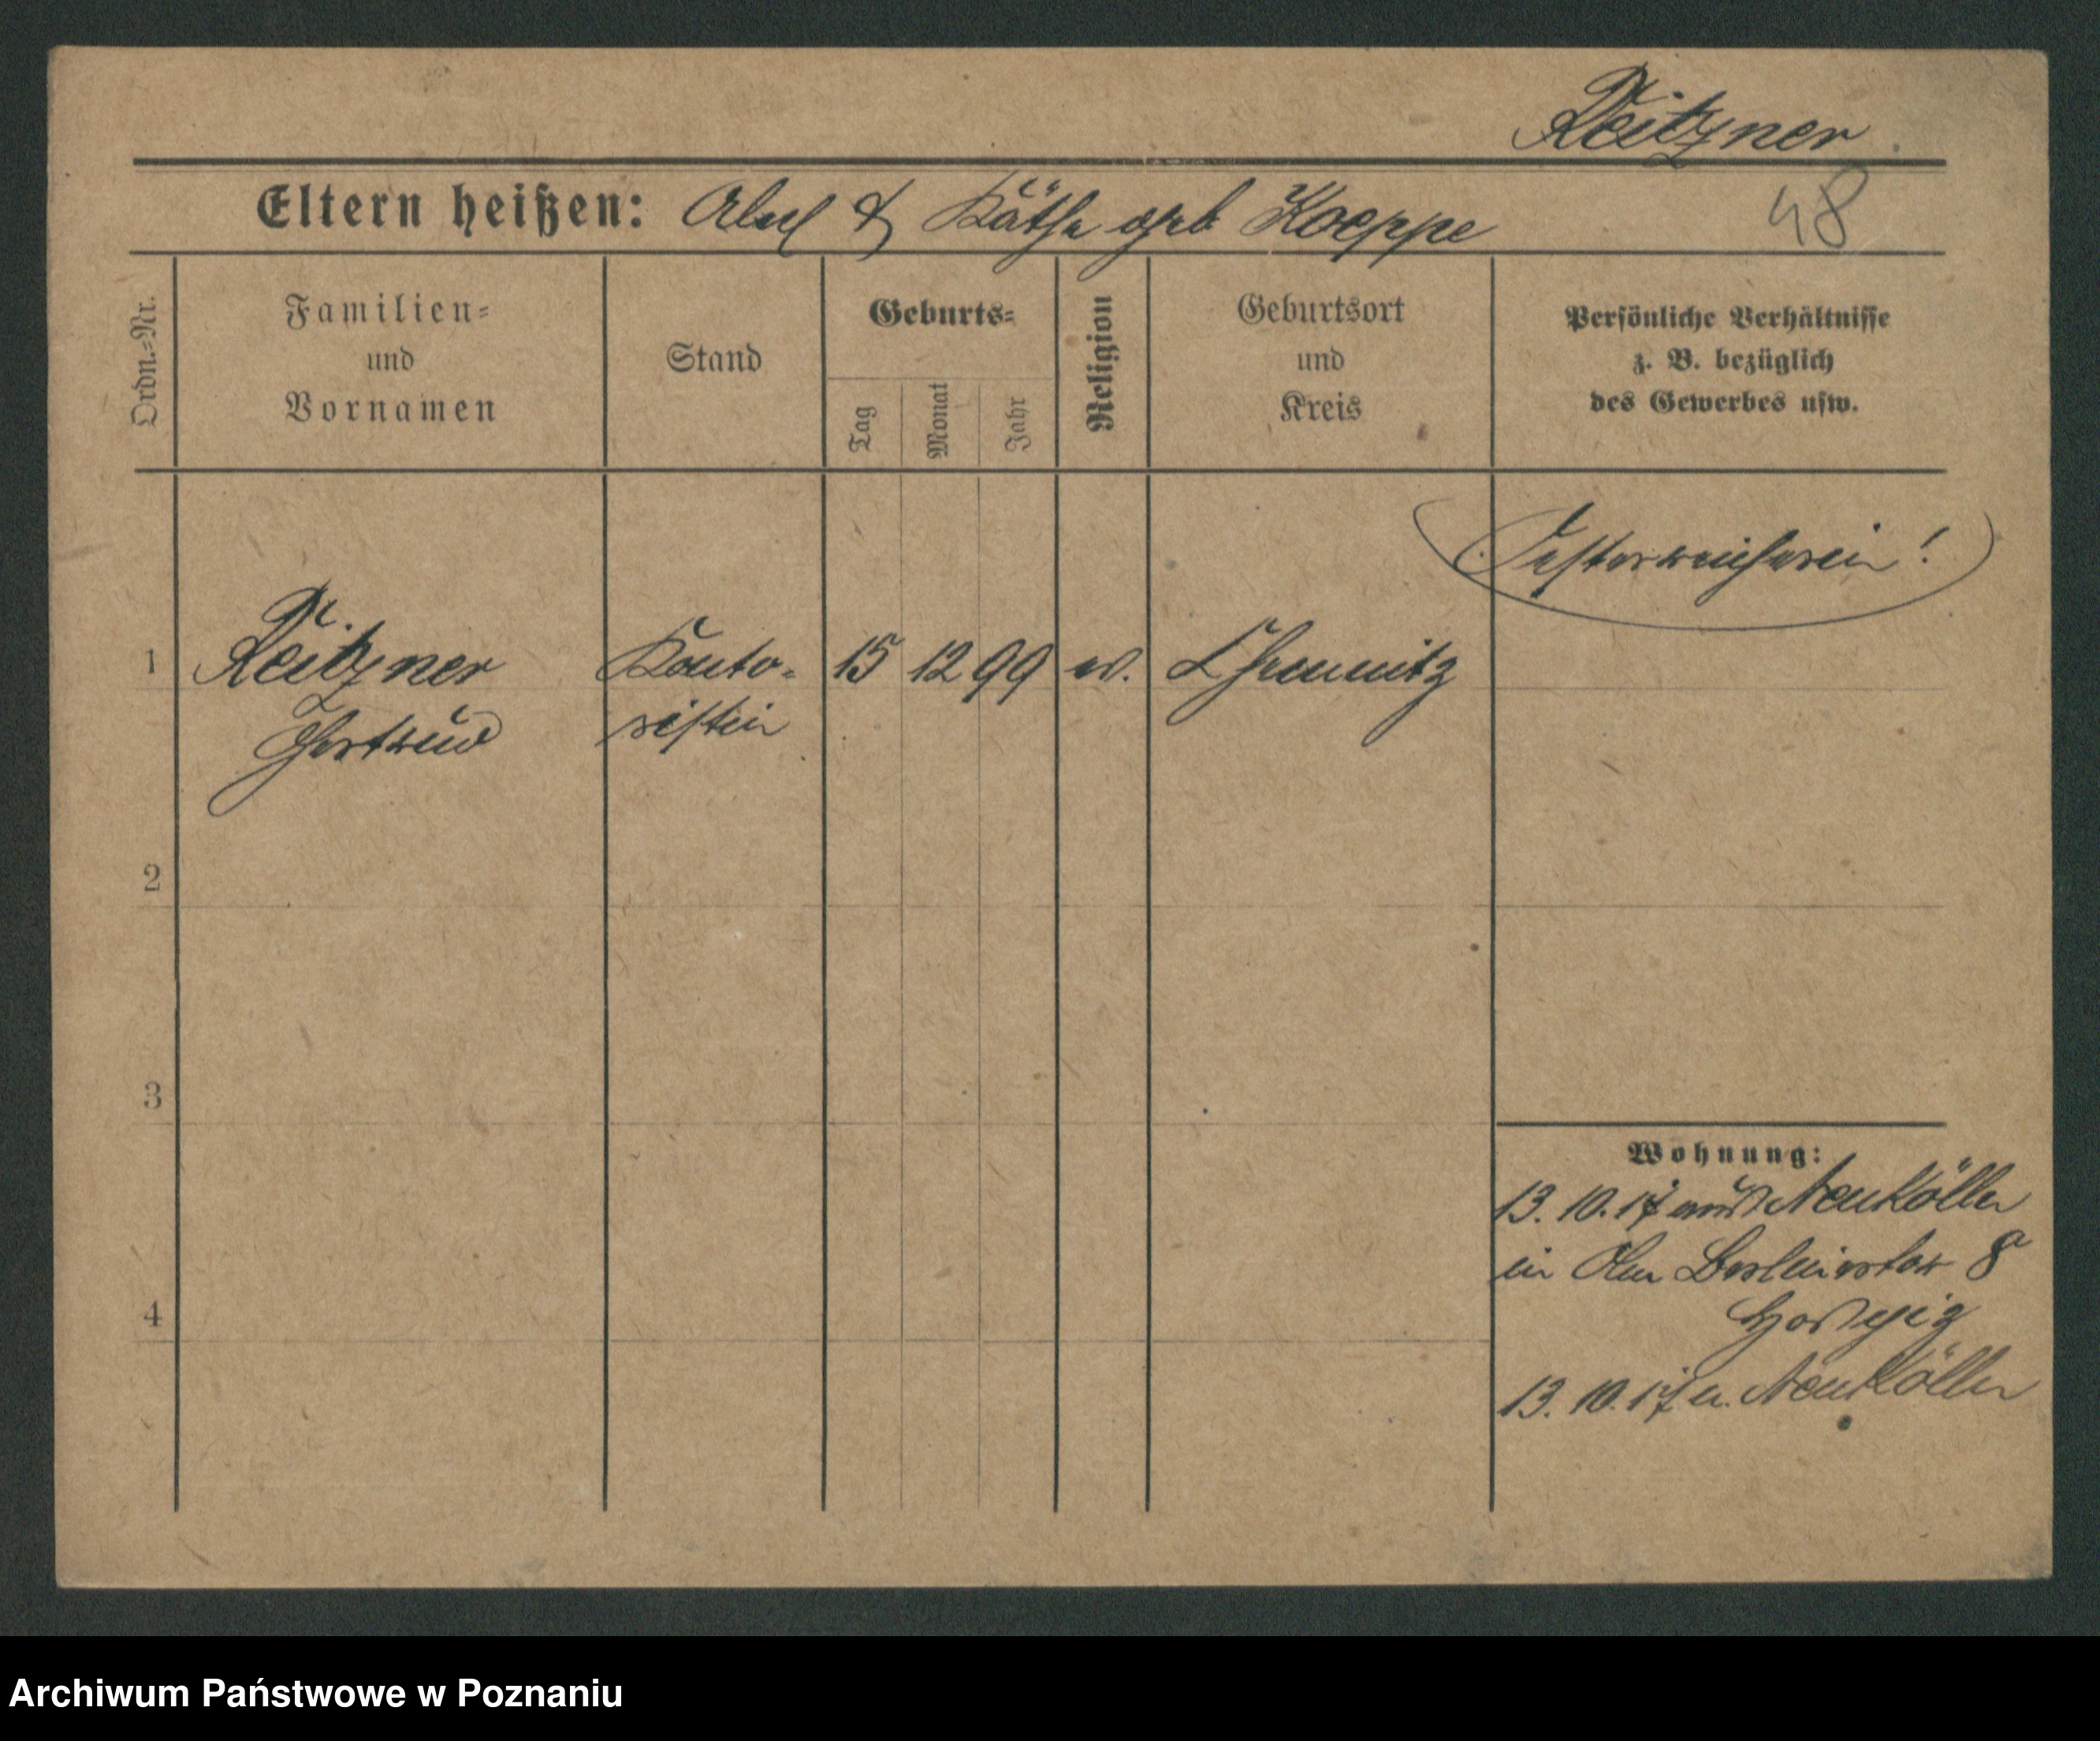 Reitzner
Eltern heißen: Abel & Käthe geb Koeppe
48
Ordn.-Nr.
Familien-
und
Vornamen
Stand
Geburts-
Tag
Monat
Jahr
Religion
Geburtsort
und
Kreis
Persönliche Verhältnisse
z. B. bezüglich
des Gewerbes usw.
Oesterreicherin!
1
Reitzner
Gertrud
Konto-
ristin
15 12 99
ev.
Chemnitz
2
3
4
Wohnung:
13. 10. 17 aus Neukölln
in Berlinertor 8
13. 10. 17 n. Neukölln
Archiwum Państwowe w Poznaniu